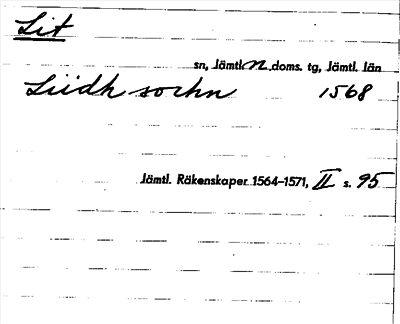 Lit
sn, Jämtl. n. doms. tg, Jämtl. län
Liidh sochn 1568
Jämtl. Räkenskaper 1564–1571, II s. 95